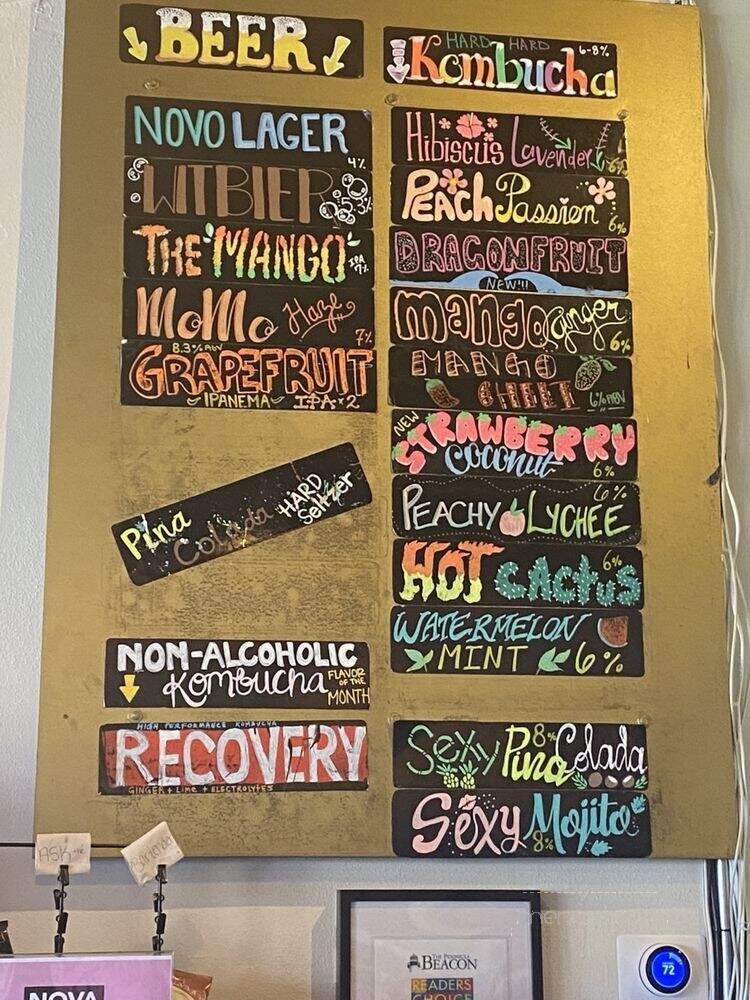 BEER
NOVO LAGER
4%
WITBIER
THE MANGO
IPA
7%
MoMo Haze
7%
8.3% ABV
GRAPEFRUIT
IPANEMA IPA x2
Pina Colada HARD
Seltzer
NON-ALCOHOLIC
Kombucha
FLAVOR
OF THE
MONTH
HIGH PERFORMANCE KOMBUCHA
RECOVERY
GINGER + LIME + ELECTROLYTES
HARD HARD 6-8%
Kombucha
Hibiscus Lavender
6%
PEACH Passion
6%
DRAGONFRUIT
NEW!!!
mango ginger
6%
MANGO
CHILI
6% ABV
NEW
STRAWBERRY
coconut
6%
6%
PEACHY LYCHEE
6%
HOT CACTUS
WATERMELON
MINT 6%
Sexy Pina Colada
8%
Sexy Mojito
8%
ASK
NOVA
THE PENINSULA
BEACON
READERS
CHOICE
72